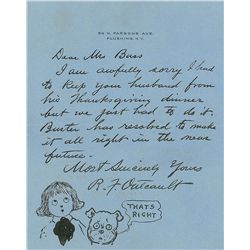 56 N. PARSONS AVE.
FLUSHING, N.Y.
Dear Mrs Bass
I am awfully sorry I had
to keep your husband from
his Thanksgiving dinner
but we just had to do it.
Buster has resolved to make
it all right in the near
future.
Most Sincerely Yours
R. F. Outcault
THATS
RIGHT